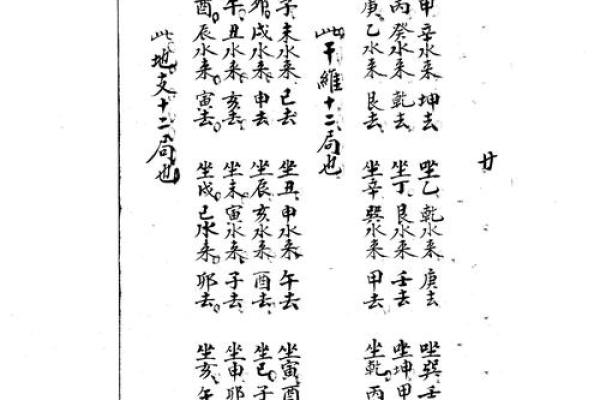 廿
甲辛水来坤去 坐乙乾水来庚去 坐巽壬
丙癸水来乾去 坐丁艮水来壬去 坐坤甲
庚乙水来艮去 坐辛巽水来甲去 坐乾丙
此干維十二局也
子未水来。巳去 坐丑。申水来。午去 坐寅酉
卯。戌水来。申去 坐辰。亥水来。酉去。 坐巳。子
午。丑水来。亥去。 坐未。寅水来。子去。 坐申卯
酉。辰水来。寅去。 坐戌。巳水来。卯去。 坐亥。午
此地支十二局也